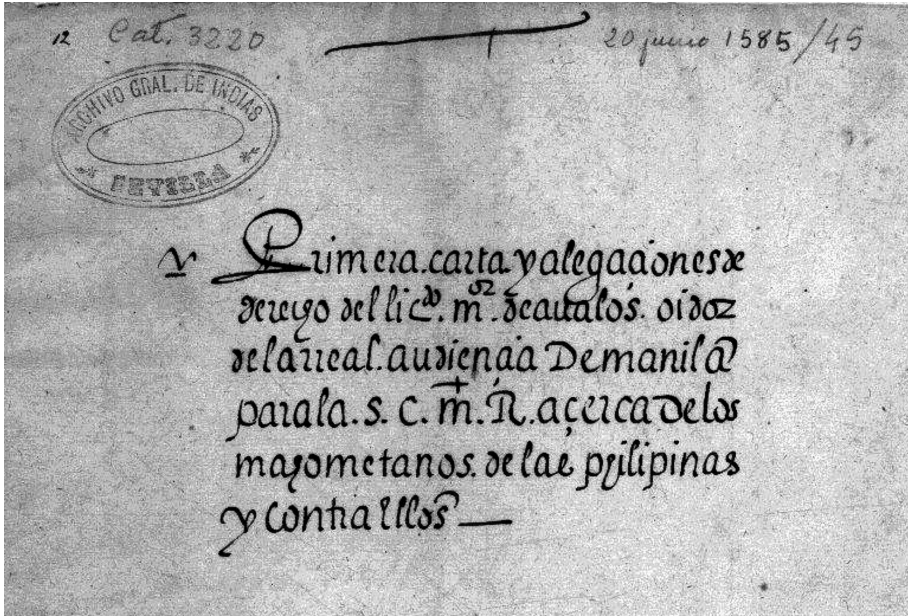 12 Cat. 3220
20 junio 1585 / 45
ARCHIVO GRAL. DE INDIAS
SEVILLA
Primera.carta.y alegaçiones de
derecho del licdo. mor. de aualos. oidor
de la rreal.audiençia De manila
para la. s. C. m. R. açerca de los
mahometanos. de las philipinas
y Contra Ellos